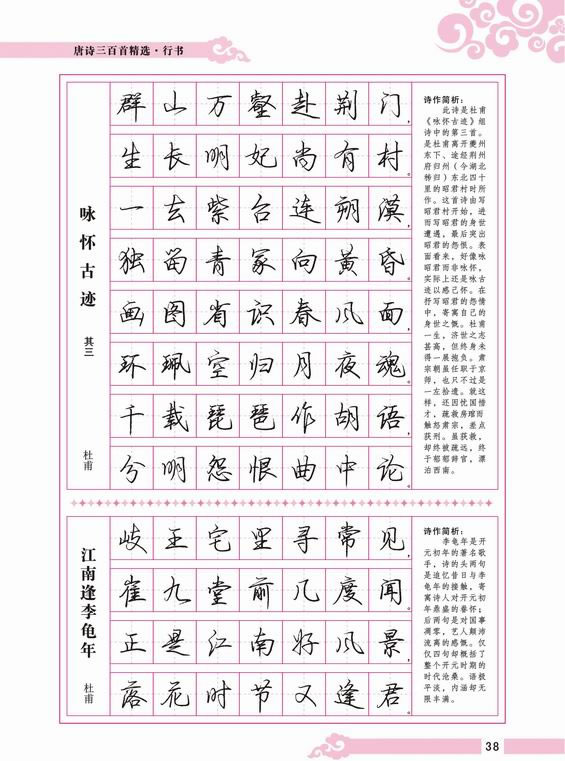 唐诗三百首精选·行书
咏怀古迹
其三
杜甫
群山万壑赴荆门，
生长明妃尚有村。
一去紫台连朔漠，
独留青冢向黄昏。
画图省识春风面，
环珮空归月夜魂。
千载琵琶作胡语，
分明怨恨曲中论。
诗作简析：
此诗是杜甫
《咏怀古迹》组
诗中的第三首。
是杜甫离开夔州
东下、途经荆州
府归州（今湖北
秭归）东北四十
里的昭君村时所
作。这首诗由写
昭君村开始，进
而写昭君的身世
遭遇，最后突出
昭君的怨恨。表
面看来，好像咏
昭君而非咏怀，
实际上还是咏古
迹以感己怀。在
抒写昭君的怨情
中，寄寓自己的
身世之慨。杜甫
一生，济世之志
甚高，但终身未
得一展抱负。肃
宗朝虽任职于京
师，也只不过是
一左拾遗。就这
样，还因忧国惜
才，疏救房琯而
触怒肃宗，差点
获刑。虽获救，
却终被疏远，终
于郁郁辞官，漂
泊西南。
江南逢李龟年
杜甫
岐王宅里寻常见，
崔九堂前几度闻。
正是江南好风景，
落花时节又逢君。
诗作简析：
李龟年是开
元初年的著名歌
手，诗的头两句
是追忆昔日与李
龟年的接触，寄
寓诗人对开元初
年鼎盛的眷怀；
后两句是对国事
凋零，艺人颠沛
流离的感慨。仅
仅四句却概括了
整个开元时期的
时代沧桑。语极
平淡，内涵却无
限丰满。
38